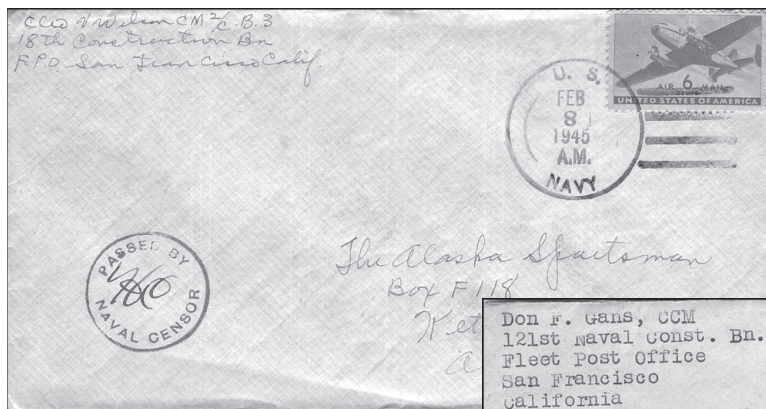 Cleo V Wilson CM 2/c C.B.3
18th Construction Bn
F.P.O. San Francisco Calif.
AIR 6 MAIL
CENTS
UNITED STATES OF AMERICA
U. S.
FEB
8
1945
A.M.
NAVY
PASSED BY
NAVAL CENSOR
The Alaska Sportsman
Box F 118
Ket
A
Don F. Gans, CCM
121st Naval Const. Bn.
Fleet Post Office
San Francisco
California